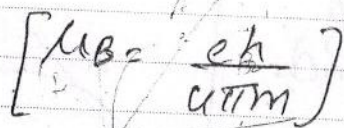 [μB = eh / 4πm]